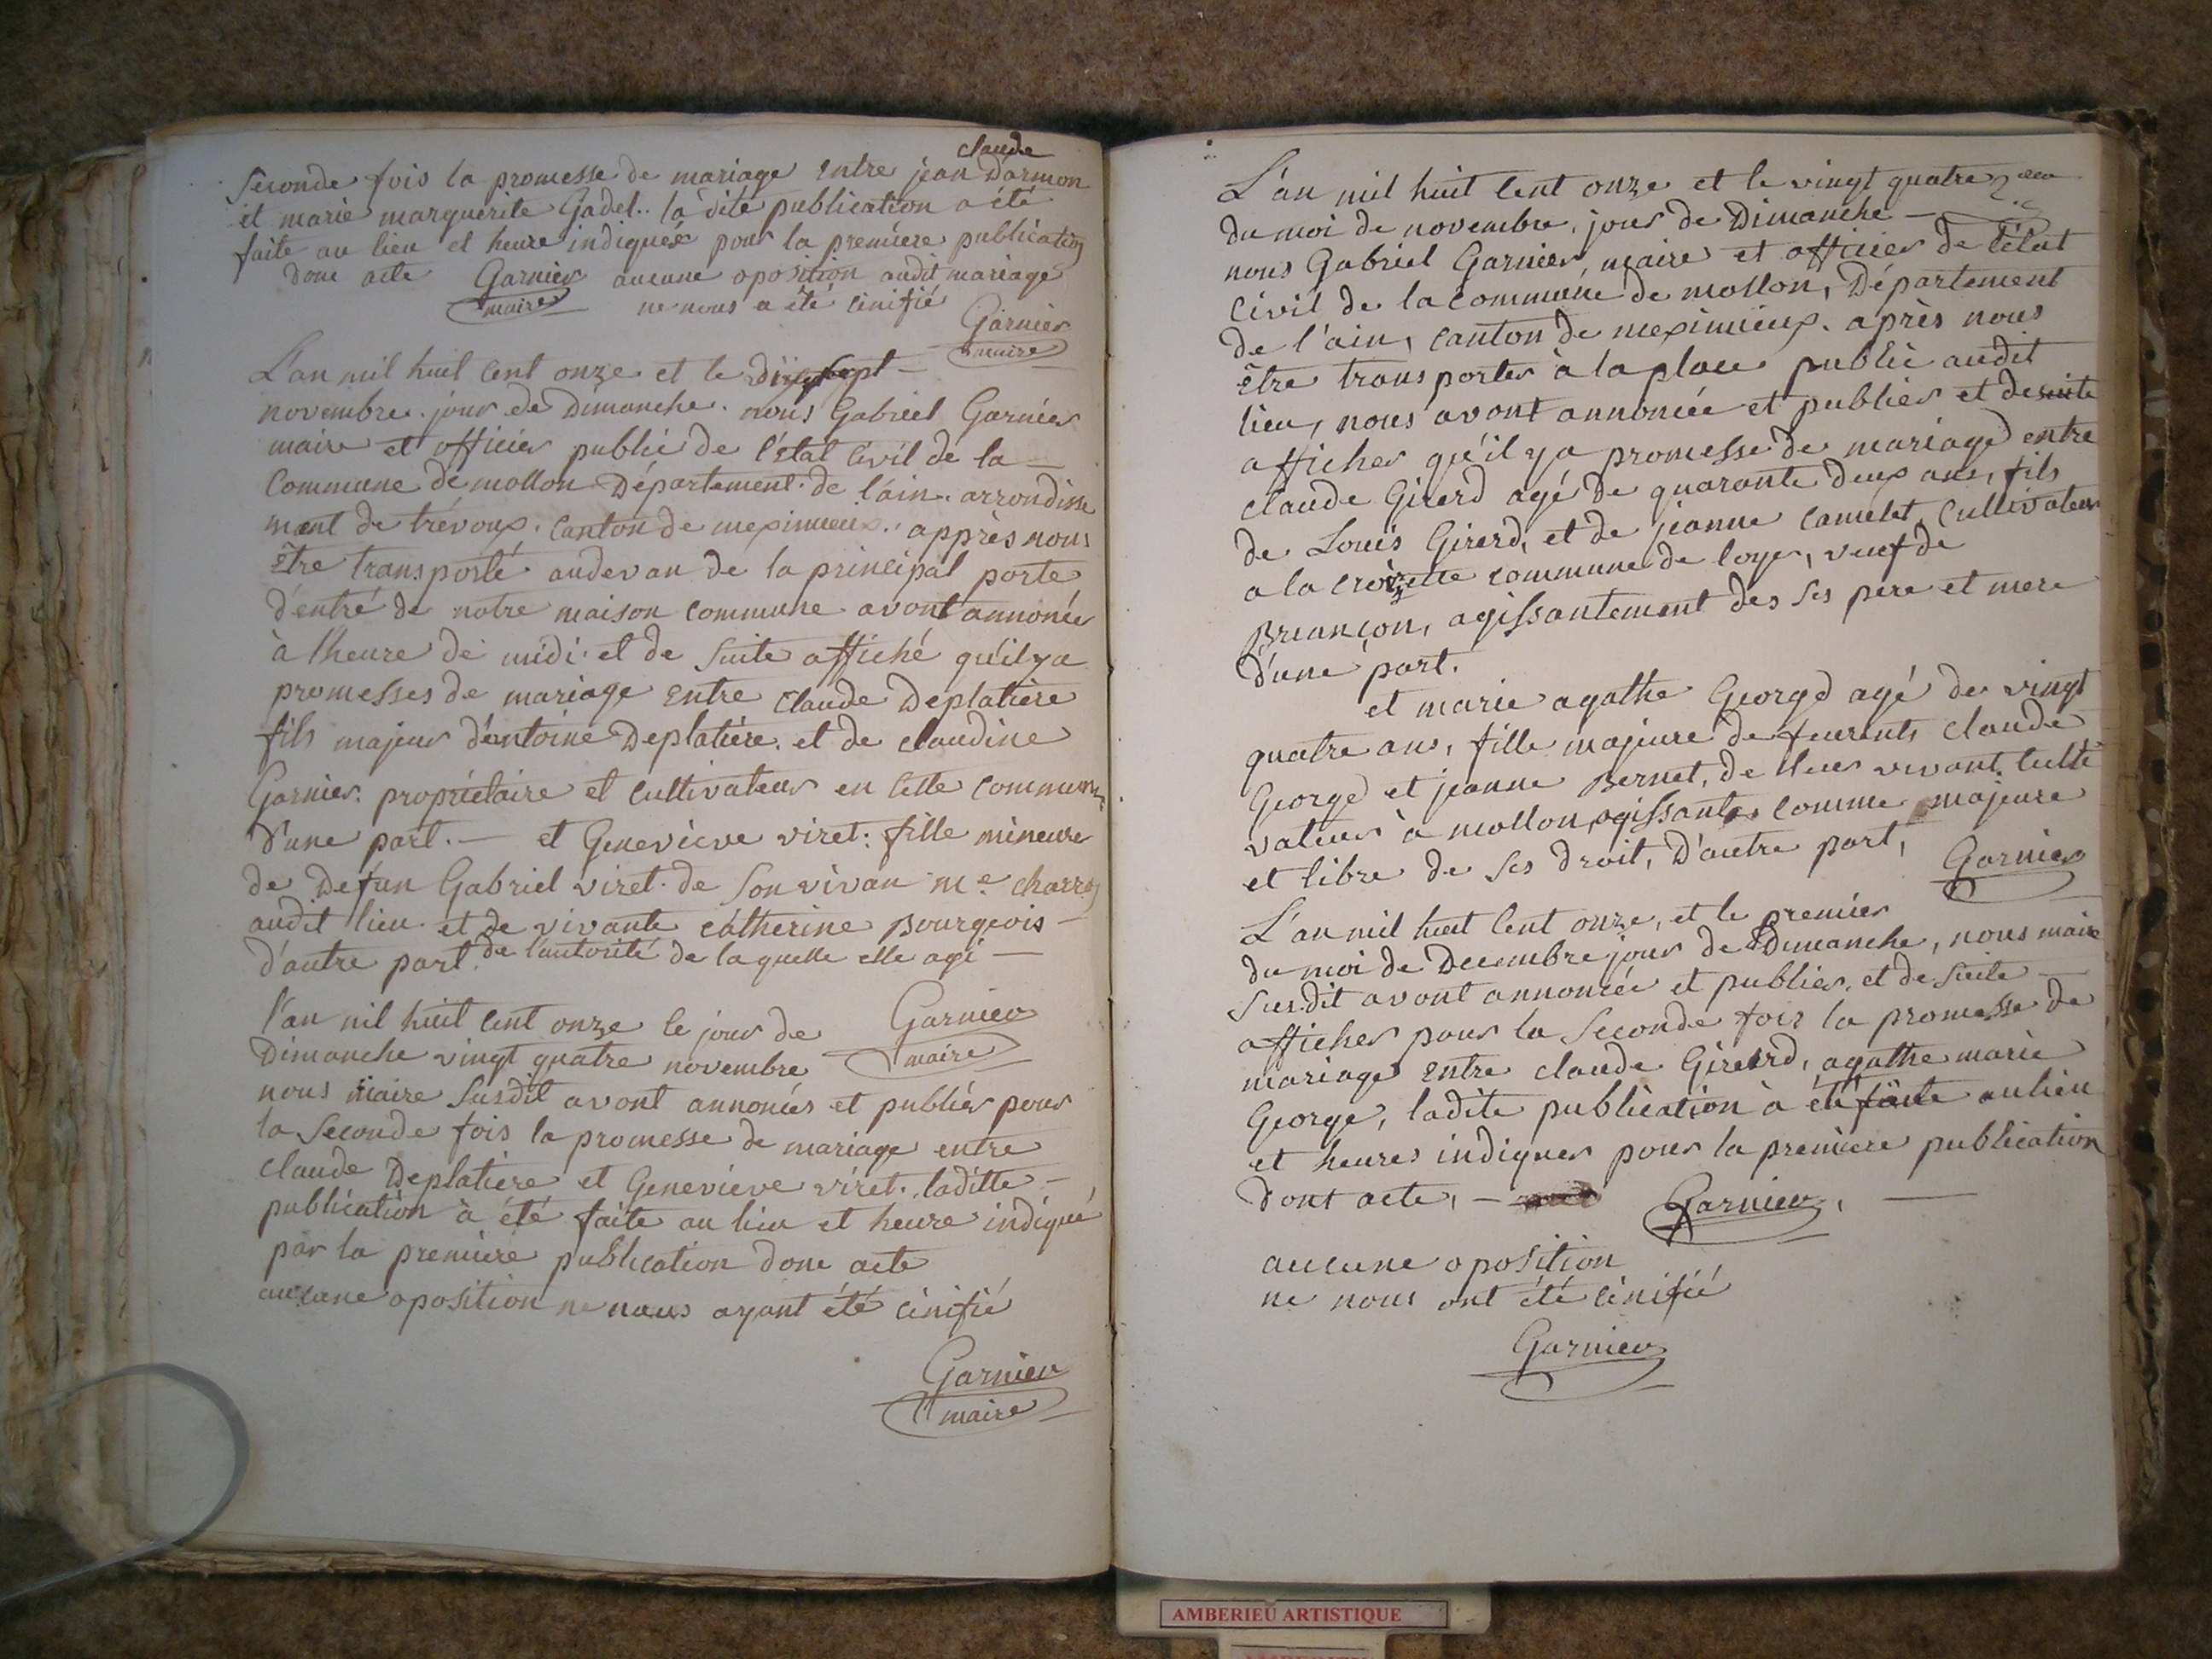 claude
Seconde fois la promesse de mariage entre jean Darmon
et marie marguerite Gadel.. la dite publication a été
faite au lieu et heure indiquée pour la premiere publication
donc acte Garnier aucune oposition audit mariage
maire ne nous a été cinifié
Garnier
maire
L'an mil huit cent onze et le dixsept
novembre. jour de Dimanche. nous Gabriel Garnier
maire et officier public de l'état civil de la
Commune de mollon Département de l'ain. arrondisse
ment de trévoux. canton de meximieux. apprès nous
être transporté audevan de la principal porte
d'entré de notre maison commune avont annoncée
à lheure de midi et de suite affiché qu'il y a
promesses de mariage entre claude Deplatière
fils majeur d'antoine Deplatière. et de claudine
Garnier. propriétaire et cultivateur en cette commune
d'une part. — et Geneviève viret. fille mineure
de Defun Gabriel viret. de son vivan me charron
audit lieu et de vivante catherine Bourgeois —
d'autre part. de l'autorité de laquelle elle agi —
l'an mil huit cent onze le jour de Garnier
Dimanche vingt quatre novembre maire
nous maire susdit avont annoncées et publiér pour
la seconde fois la promesse de mariage entre
claude Deplatière et Genevieve viret. laditte —
publication à été faite au lieu et heure indiqué
par la première publication donc acte
aucune oposition ne nous ayant été cinifié
Garnier
maire
L'an mil huit cent onze et le vingt quatre
du moi de novembre, jour de Dimanche —
nous Gabriel Garnier, maire et officier de l'état
civil de la commune de mollon, Département
de l'ain, canton de meximieux. après nous
être transporter à la place public audit
lieu, nous avont annoncée et publier et desuite
afficher qu'il y a promesse de mariage entre
claude Girerd agé de quarante deux ans, fils
de Louis Girerd, et de jeanne camelet, cultivateur
a la croizette commune de loye, veuf de
Briançon, agissantement des ses pere et mere
d'une part.
et marie agathe George agé de vingt
quatre ans, fille majeure de feurents claude
George et jeanne Bernet, de leur vivant culti
vateur à mollon, agissante comme majeure
et libre de ses droit, D'autre part, Garnier
L'an mil huit cent onze, et le premier
du moi de Decembre jour de Dimanche, nous maire
susdit avont annoncée et publier, et de suite
afficher pour la seconde fois la promesse de
mariage entre claude Girerd, agathe marie
George, ladite publication à été faite au lieu
et heures indiquer pour la première publication
dont acte, — Garnier,
aucune oposition
ne nous ont été cinifié
Garnier
AMBERIEU ARTISTIQUE